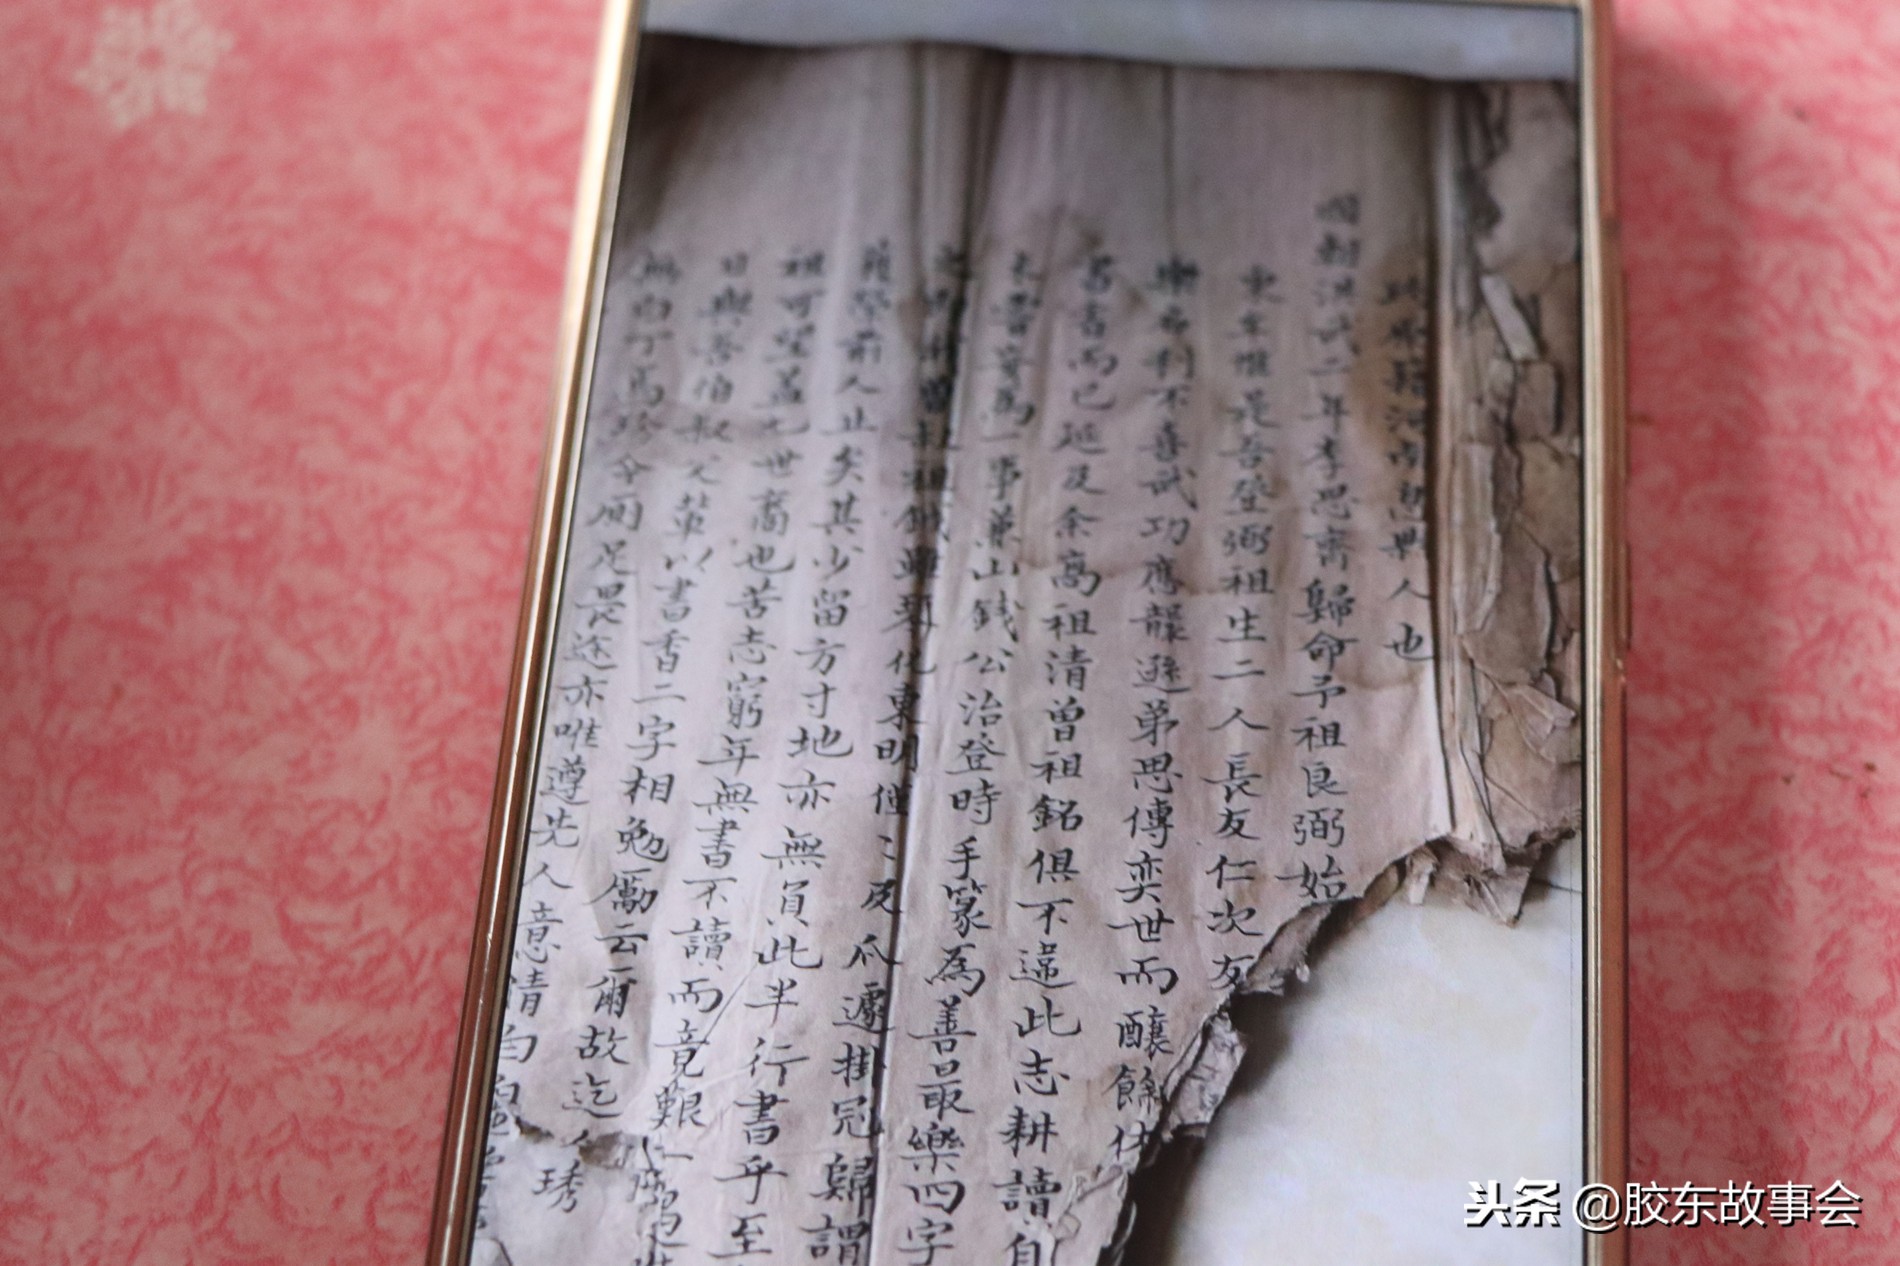 籍河南息縣人也
國朝洪武二年李思齊歸命予祖良弼始
東牟惟是吾登弼祖生二人長友仁次友
樂名利不喜武功應龍遜弟思傳奕世而釀餘休
書言而已延及余高祖清曾祖銘俱不違此志耕讀自
未嘗妄為一事兼山錢公治登時手篆為善最樂四字
曾叔祖鉞雖分化東明僅二及瓜遽掛冠歸謂
前人止矣其少留方寸地亦無負此半行書乎至
祖可望蓋七世裔也苦志窮年無書不讀而竟艱
日與吾伯叔父輩以書香二字相勉勵云爾故迄
無白丁焉珍今廁足畏途亦唯遵先人意清白
琇
头条 @胶东故事会